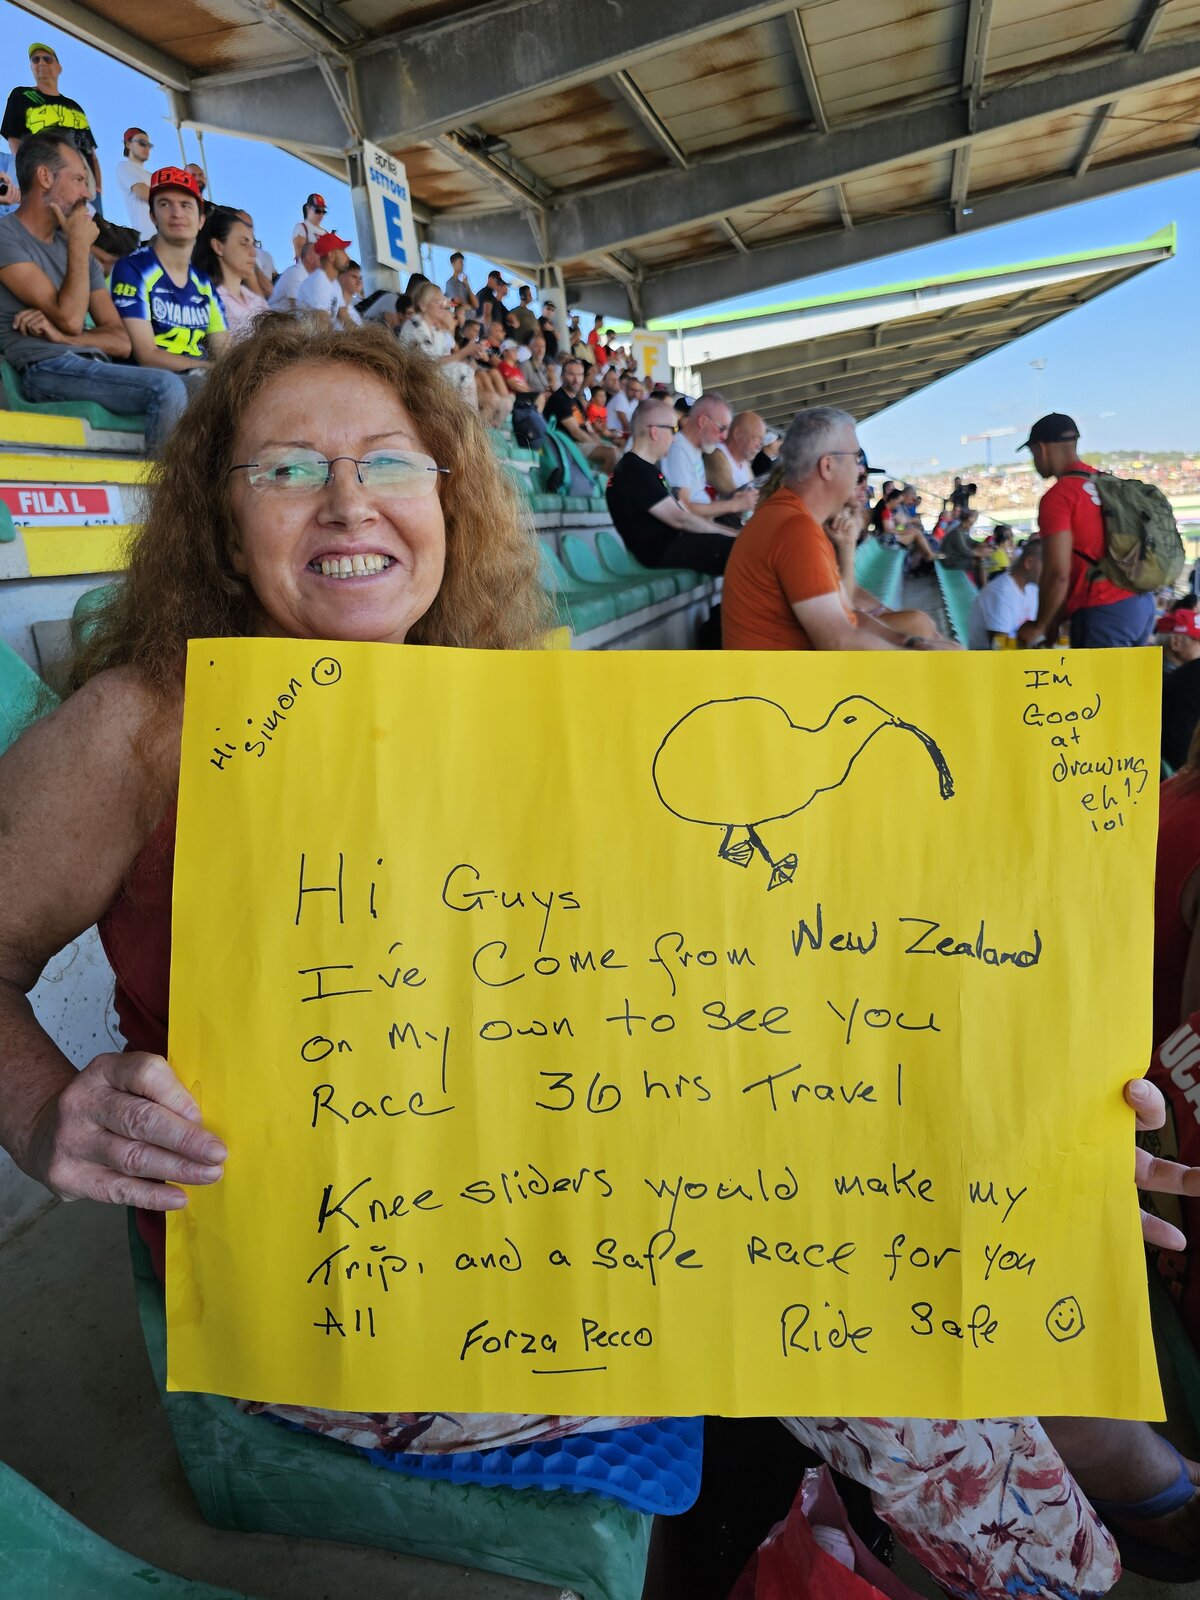 aprilia
SETTORE
E
F
63
46
YAMAHA
46
FILA L
Hi
Simon
I'm
Good
at
drawing
eh!
lol
Hi Guys
I've Come from New Zealand
on My own to See You
Race 36 hrs Travel
Knee sliders would make my
Trip, and a Safe Race for you
All
Forza Pecco
Ride Safe